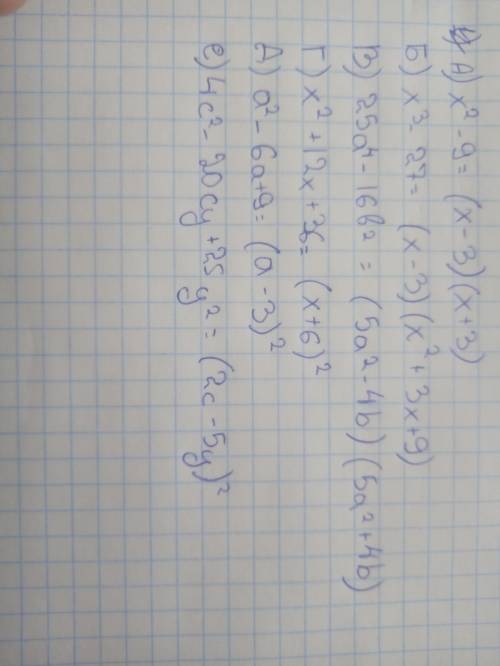 А) x² - 9 = (x - 3)(x + 3)
Б) x³ - 27 = (x - 3)(x² + 3x + 9)
В) 25a⁴ - 16b² = (5a² - 4b)(5a² + 4b)
Г) x² + 12x + 36 = (x + 6)²
Д) a² - 6a + 9 = (a - 3)²
е) 4c² - 20cy + 25y² = (2c - 5y)²